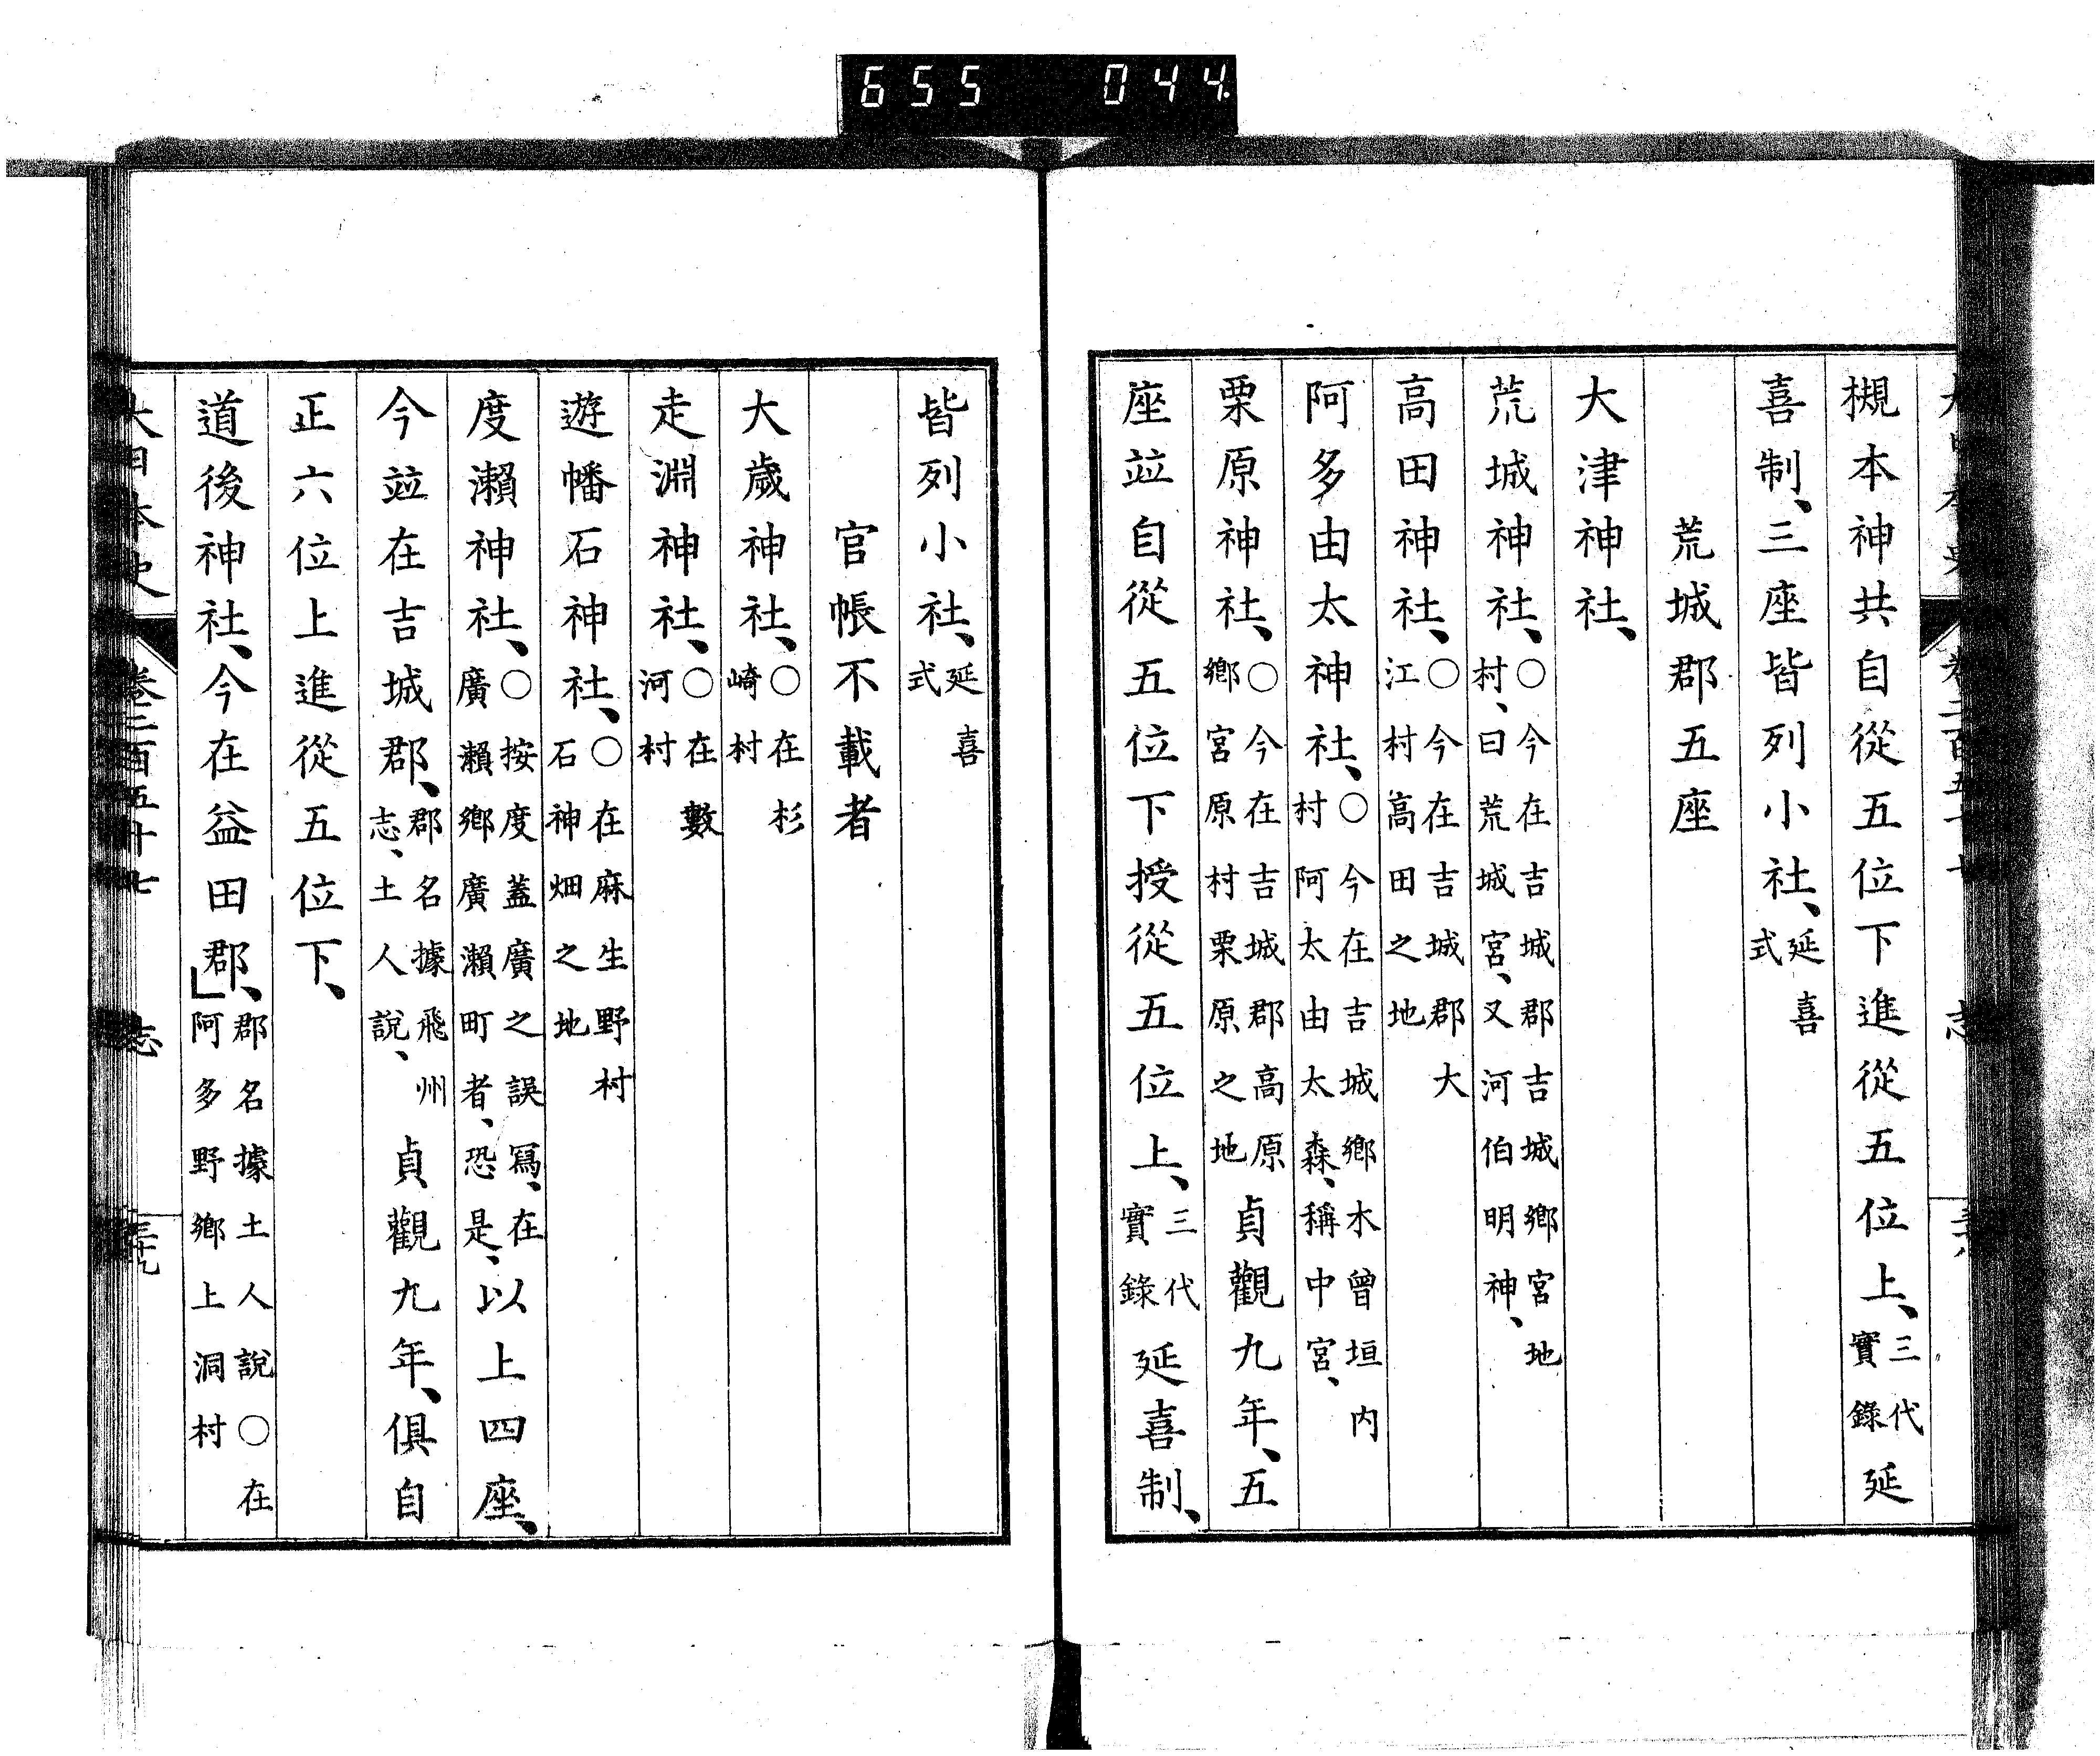 655 044
槻本神共自從五位下進從五位上、三代實錄延
喜制、三座皆列小社、延喜式
荒城郡五座
大津神社、
荒城神社、○今在吉城郡吉城鄉宮地村、曰荒城宮、又河伯明神、
高田神社、○今在吉城郡大江村高田之地
阿多由太神社、○今在吉城鄉木曾垣内村阿太由太森、稱中宮、
栗原神社、○今在吉城郡高原鄉宮原村栗原之地貞觀九年、五
座竝自從五位下授從五位上、三代實錄延喜制、
皆列小社、延喜式
官帳不載者
大歲神社、○在杉崎村
走淵神社、○在數河村
遊幡石神社、○在麻生野村石神畑之地
度瀨神社、○按度蓋廣之誤寫、在廣瀨鄉廣瀨町者、恐是、以上四座、
今竝在吉城郡、郡名據飛州志、土人說、貞觀九年、俱自
正六位上進從五位下、
道後神社、今在益田郡、郡名據土人說○在阿多野鄉上洞村
大日本史 卷二百五十七 志 三十九